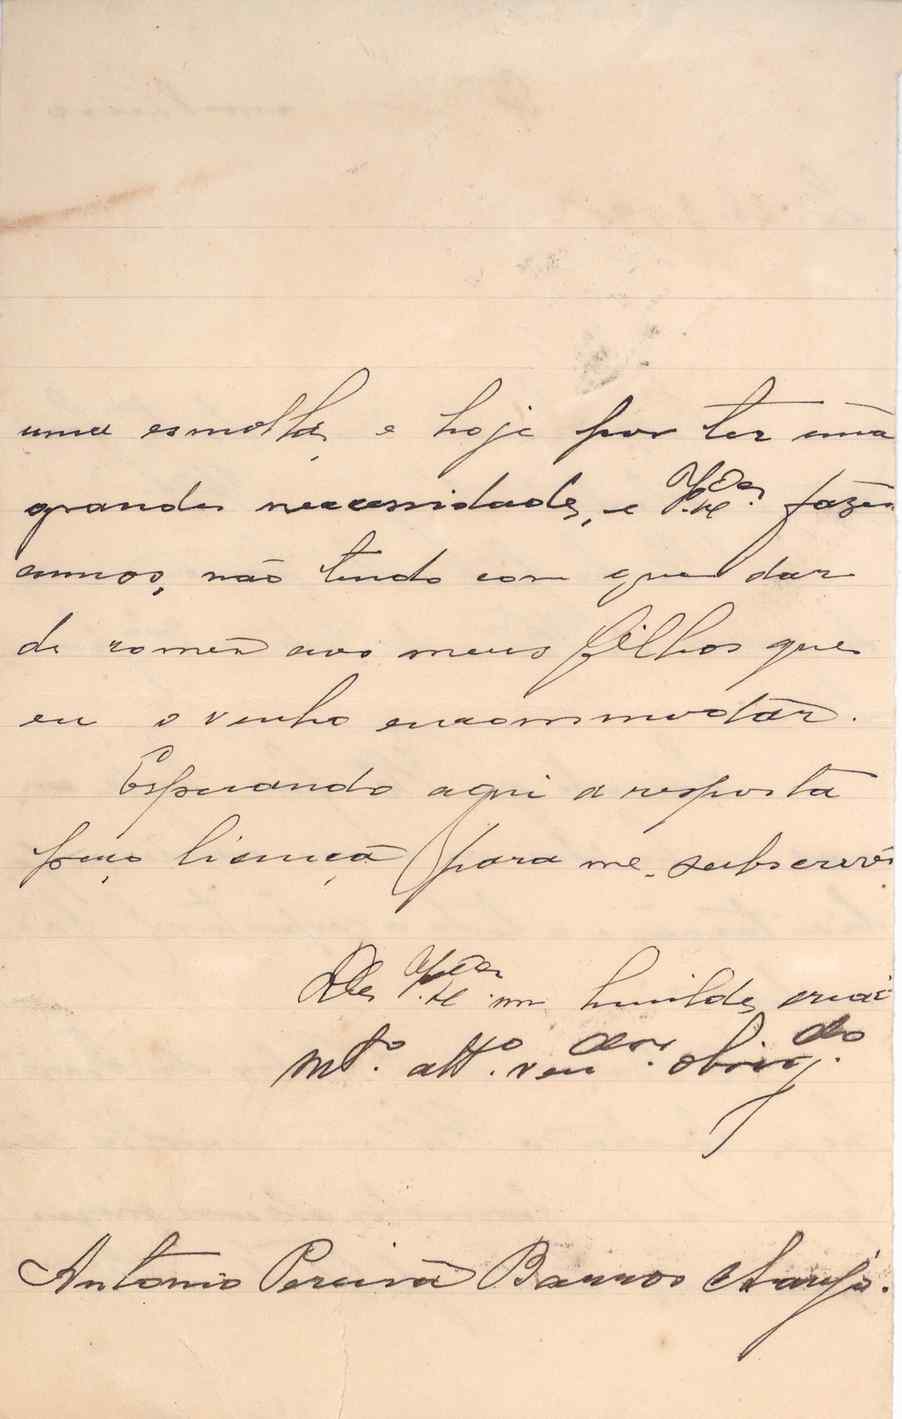 uma esmolla, e hoje por ter uma
grande necessidade, e V.Exª. fazer
annos, não tendo com que dar
de comer aos meus filhos que
eu o venho encommodár.
Esperando aqui a resposta
peço liçença para me subscrever
De V.Exª. um humilde criad
Mtº. attº. vendor. obrigdo.
Antonio Pereira Barros Araujo.